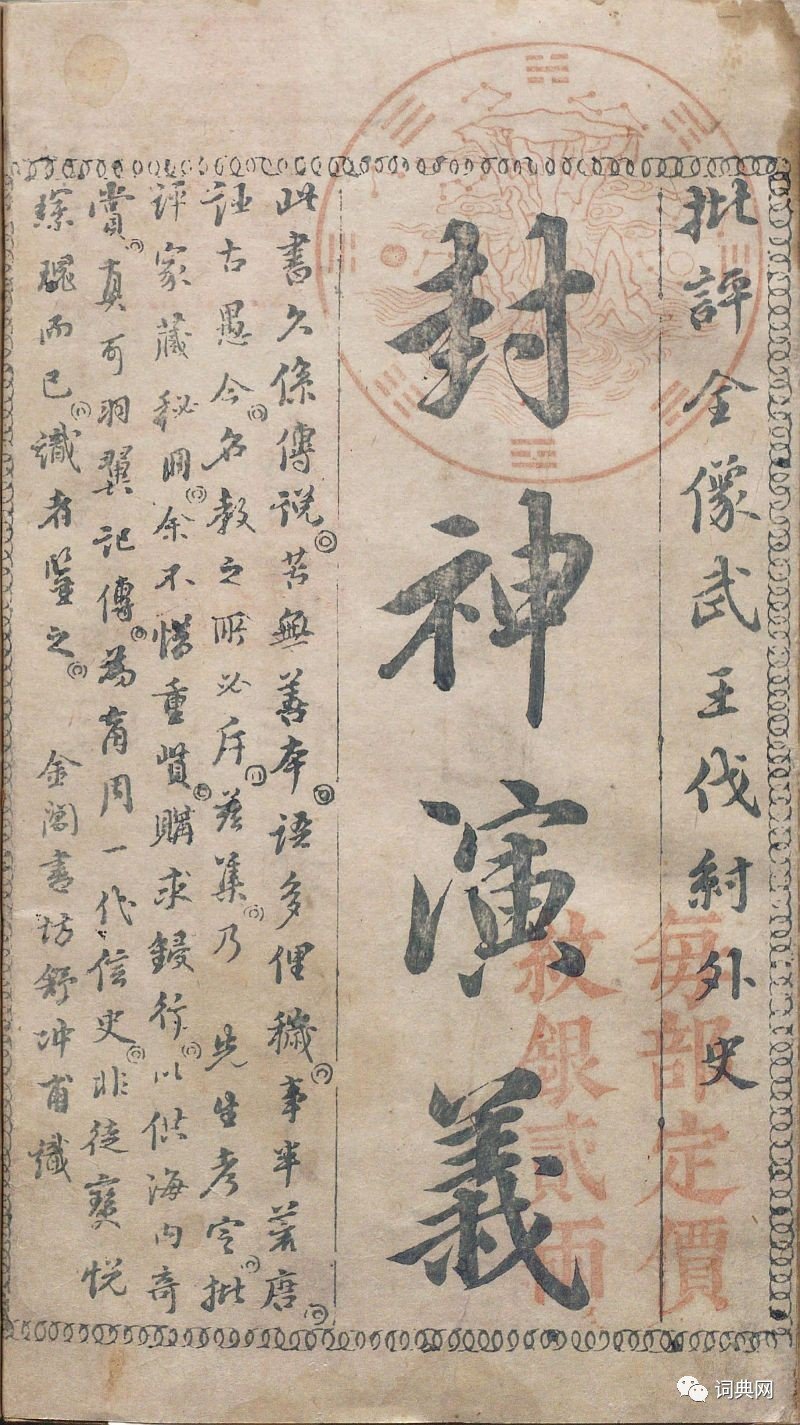 批評全像武王伐紂外史
封神演義
此書久係傳說。苦無善本。語多俚穢。事半荒唐。
誣古愚今。名教之所必斥。茲集。乃 先生考定。批
評家藏秘冊。余不惜重貲。購求鋟行。以供海內奇
賞。真可羽翼記傳。為商周一代信史。非徒寶悅
琛瑰而已。識者鑒之。 金閶書坊舒冲甫識
每部定價
紋銀貳兩
词典网